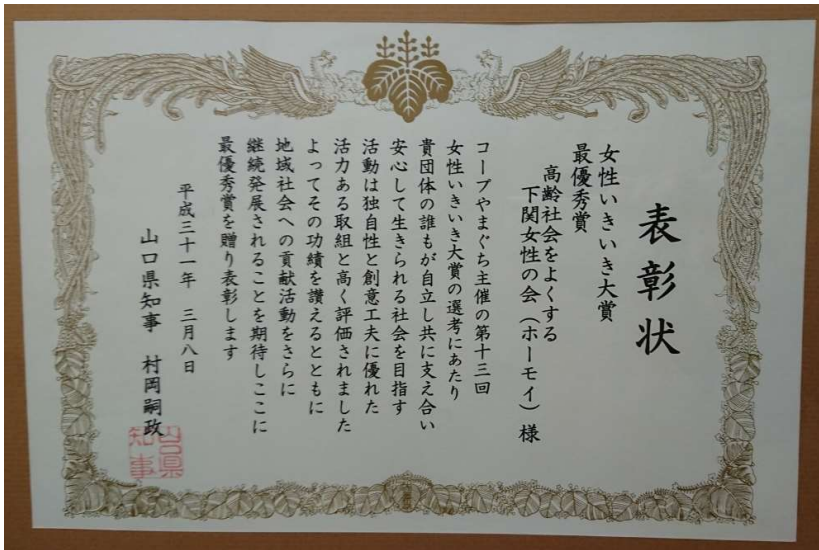 表彰状
女性いきいき大賞
最優秀賞
高齢社会をよくする
下関女性の会（ホーモイ）様
コープやまぐち主催の第十三回
女性いきいき大賞の選考にあたり
貴団体の誰もが自立し共に支え合い
安心して生きられる社会を目指す
活動は独自性と創意工夫に優れた
活力ある取組と高く評価されました
よってその功績を讃えるとともに
地域社会への貢献活動をさらに
継続発展されることを期待しここに
最優秀賞を贈り表彰します
平成三十一年 三月八日
山口県知事 村岡嗣政
山口縣
知事